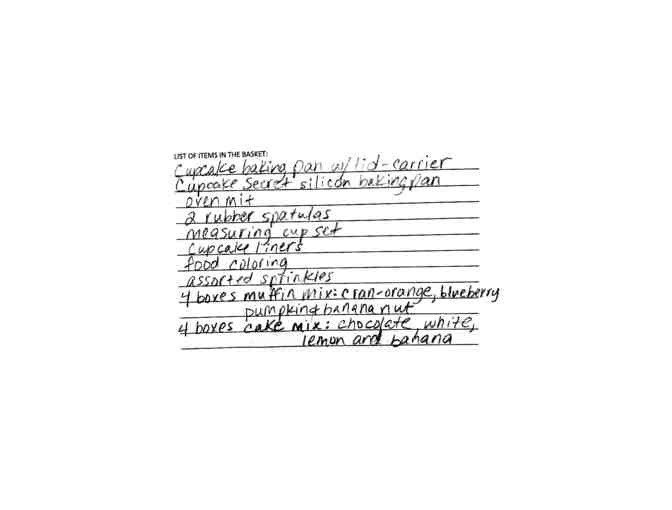 LIST OF ITEMS IN THE BASKET:
Cupcake baking pan w/ lid-carrier
Cupcake Secret silicon baking pan
oven mit
2 rubber spatulas
measuring cup set
Cupcake liners
food coloring
assorted sprinkles
4 boxes muffin mix: cran-orange, blueberry
pumpkin & banana nut
4 boxes cake mix: chocolate, white,
lemon and banana